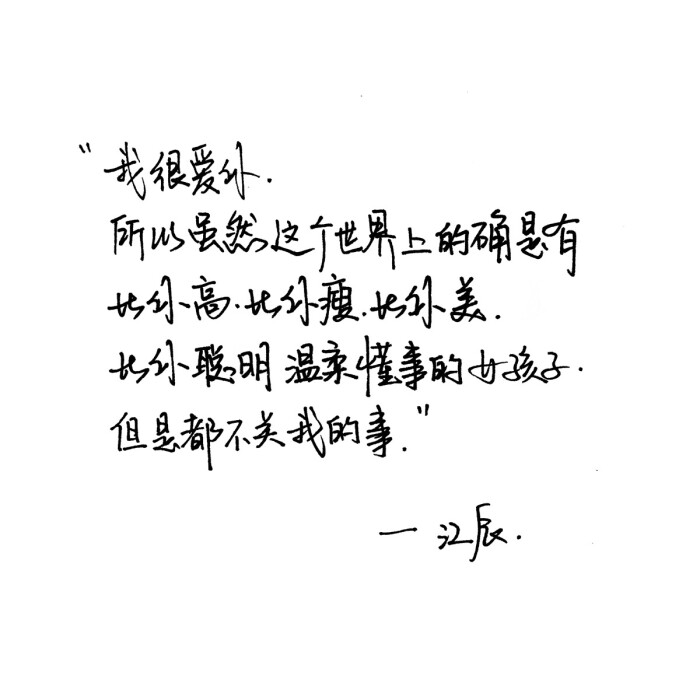 "我很爱你.
所以虽然这个世界上的确是有
比你高.比你瘦.比你美.
比你聪明温柔懂事的女孩子.
但是都不关我的事."
一江辰.